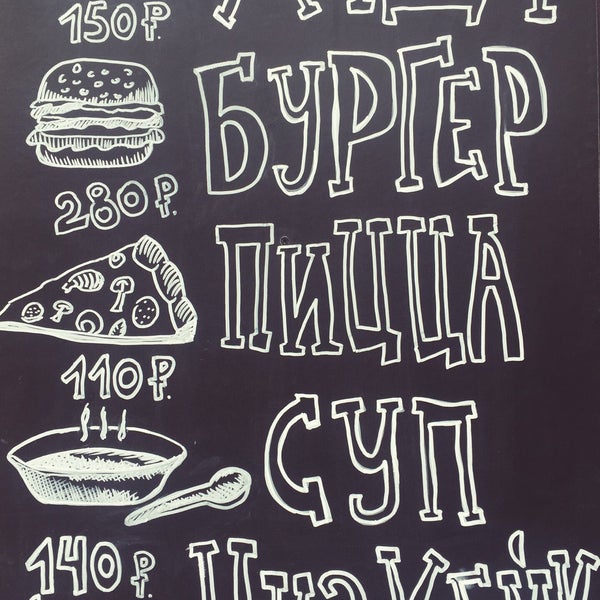 150 ₽.
БУРГЕР
280 ₽.
ПИЦЦА
110 ₽.
СУП
140 ₽.